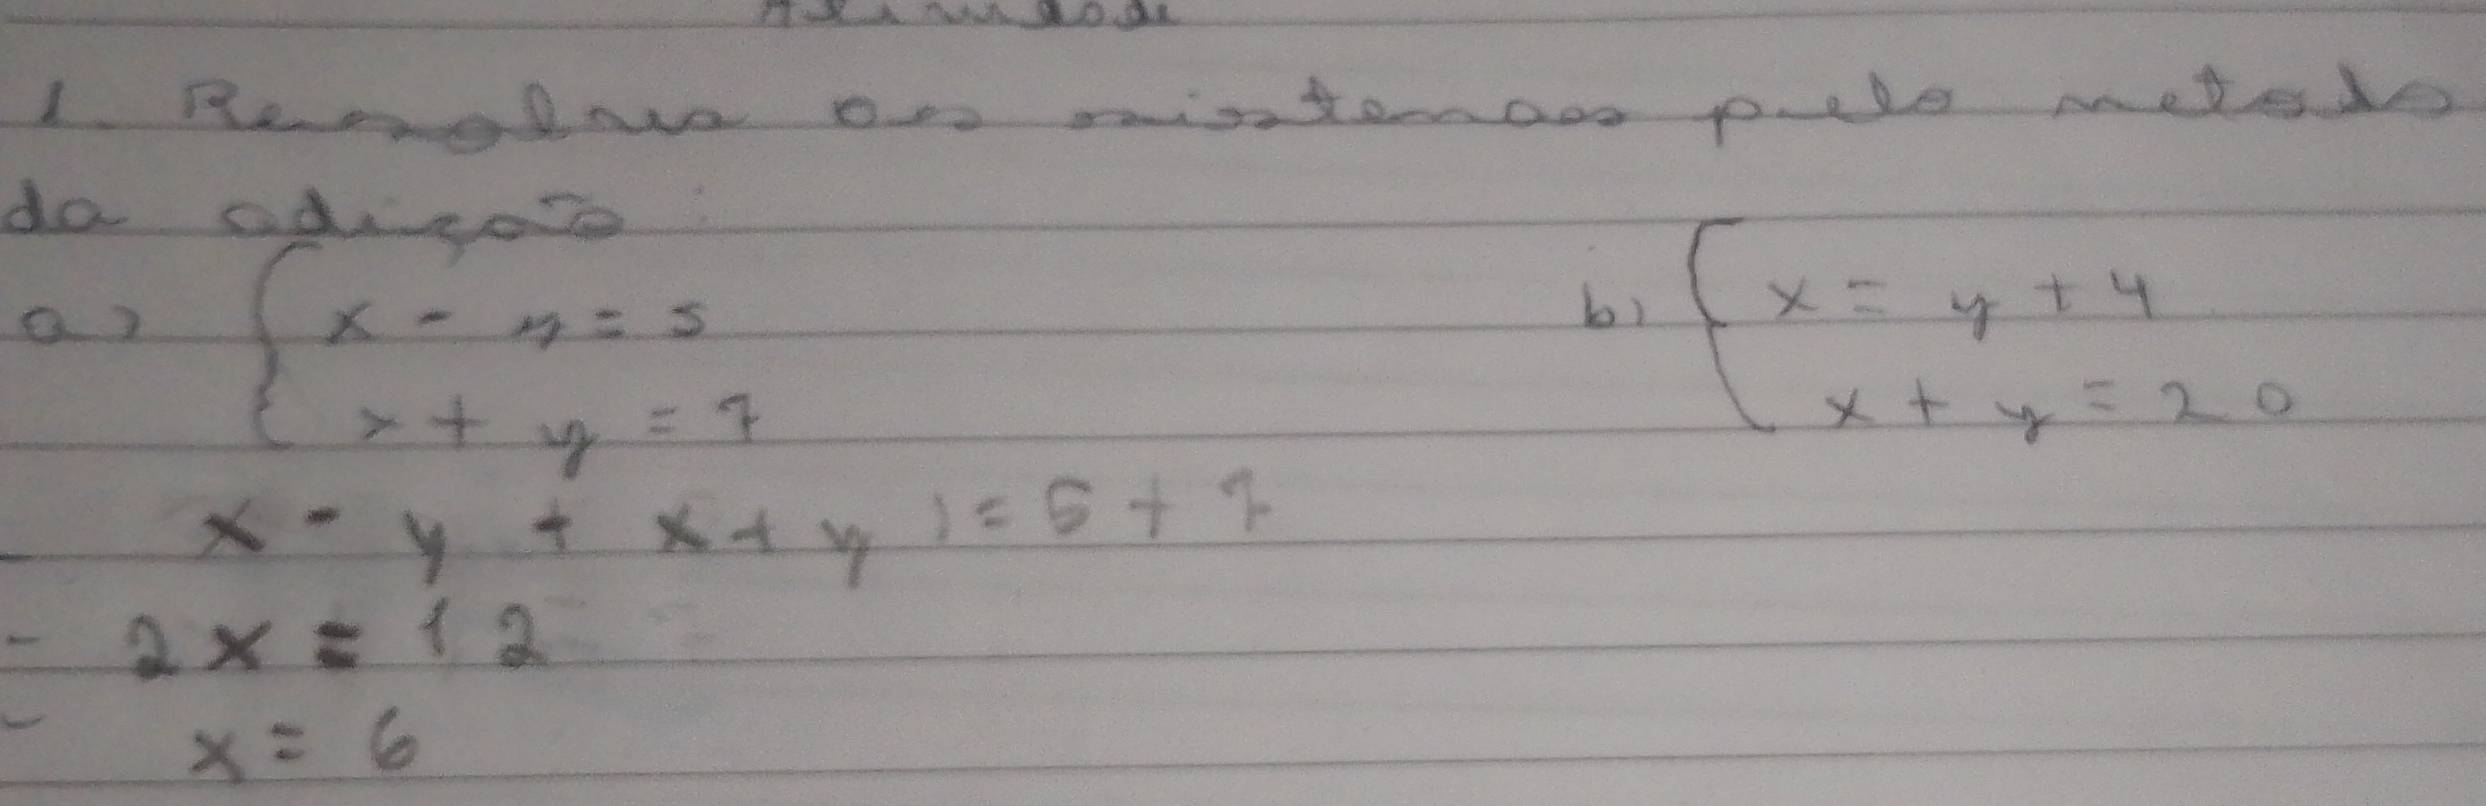 Atividade
1. Resolva os sistemas pelo metodo
da adição:
a) { x - y = 5
x + y = 7
b) { x = y + 4
x + y = 20
x - y + x + y ) = 5 + 7
- 2x = 12
- x = 6